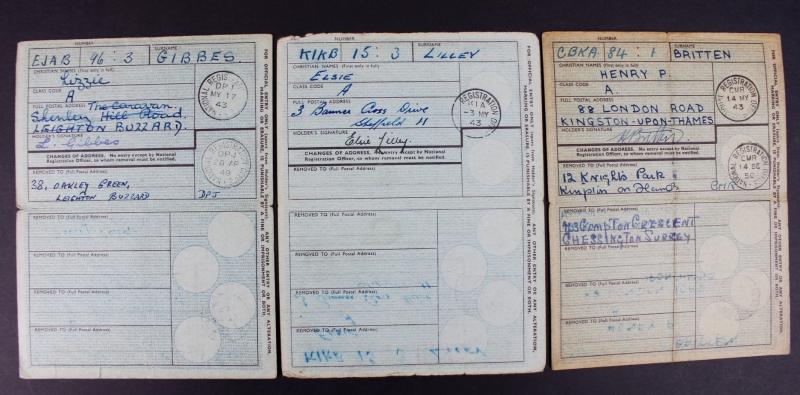 NUMBER
SURNAME
EJAB 96 : 3 GIBBES.
CHRISTIAN NAMES (First only in full)
Lizzie
CLASS CODE
A
FULL POSTAL ADDRESS The Caravan.
Shenley Hill Road.
LEIGHTON BUZZARD.
HOLDER'S SIGNATURE
L. Gibbes
CHANGES OF ADDRESS. No entry except by National
Registration Officer, to whom removal must be notified.
REMOVED TO (Full Postal Address)
38, OAKLEY GREEN,
LEIGHTON BUZZARD DPJ
REMOVED TO (Full Postal Address)
REMOVED TO (Full Postal Address)
REMOVED TO (Full Postal Address)
REMOVED TO (Full Postal Address)
NATIONAL REGISTRATION
DPJ
MY 17
43
DPJ
49
FOR OFFICIAL ENTRY ONLY (apart from Holder's Signature). ANY OTHER ENTRY OR ANY ALTERATION, MARKING OR ERASURE, IS PUNISHABLE BY A FINE OR IMPRISONMENT OR BOTH.
NUMBER
SURNAME
KIKB 15 : 3 LILLEY
CHRISTIAN NAMES (First only in full)
ELSIE
CLASS CODE
A
FULL POSTAL ADDRESS
3 Banner Cross Drive
Sheffield 11
HOLDER'S SIGNATURE
Elsie Lilley.
CHANGES OF ADDRESS. No entry except by National
Registration Officer, to whom removal must be notified.
REMOVED TO (Full Postal Address)
REMOVED TO (Full Postal Address)
REMOVED TO (Full Postal Address)
REMOVED TO (Full Postal Address)
REMOVED TO (Full Postal Address)
KIKB 15 3 LILLEY
REGISTRATION
KIA
-3 MY
43
FOR OFFICIAL ENTRY ONLY (apart from Holder's Signature). ANY OTHER ENTRY OR ANY ALTERATION, MARKING OR ERASURE, IS PUNISHABLE BY A FINE OR IMPRISONMENT OR BOTH.
NUMBER
SURNAME
CBKA 84 : 1 BRITTEN
CHRISTIAN NAMES (First only in full)
HENRY P.
CLASS CODE
A.
FULL POSTAL ADDRESS
88 LONDON ROAD
KINGSTON-UPON-THAMES
HOLDER'S SIGNATURE
CHANGES OF ADDRESS. No entry except by National
Registration Officer, to whom removal must be notified.
REMOVED TO (Full Postal Address)
12 Knights Park
Kingston on Thames CMR
REMOVED TO (Full Postal Address)
COMPTON CRESCENT
CHESSINGTON SURREY
REMOVED TO (Full Postal Address)
REMOVED TO (Full Postal Address)
REMOVED TO (Full Postal Address)
REGISTRATION
CMR
14 MY
43
CMR
14 SE
50
FOR OFFICIAL ENTRY ONLY (apart from Holder's Signature). ANY OTHER ENTRY OR ANY ALTERATION, MARKING OR ERASURE, IS PUNISHABLE BY A FINE OR IMPRISONMENT OR BOTH.